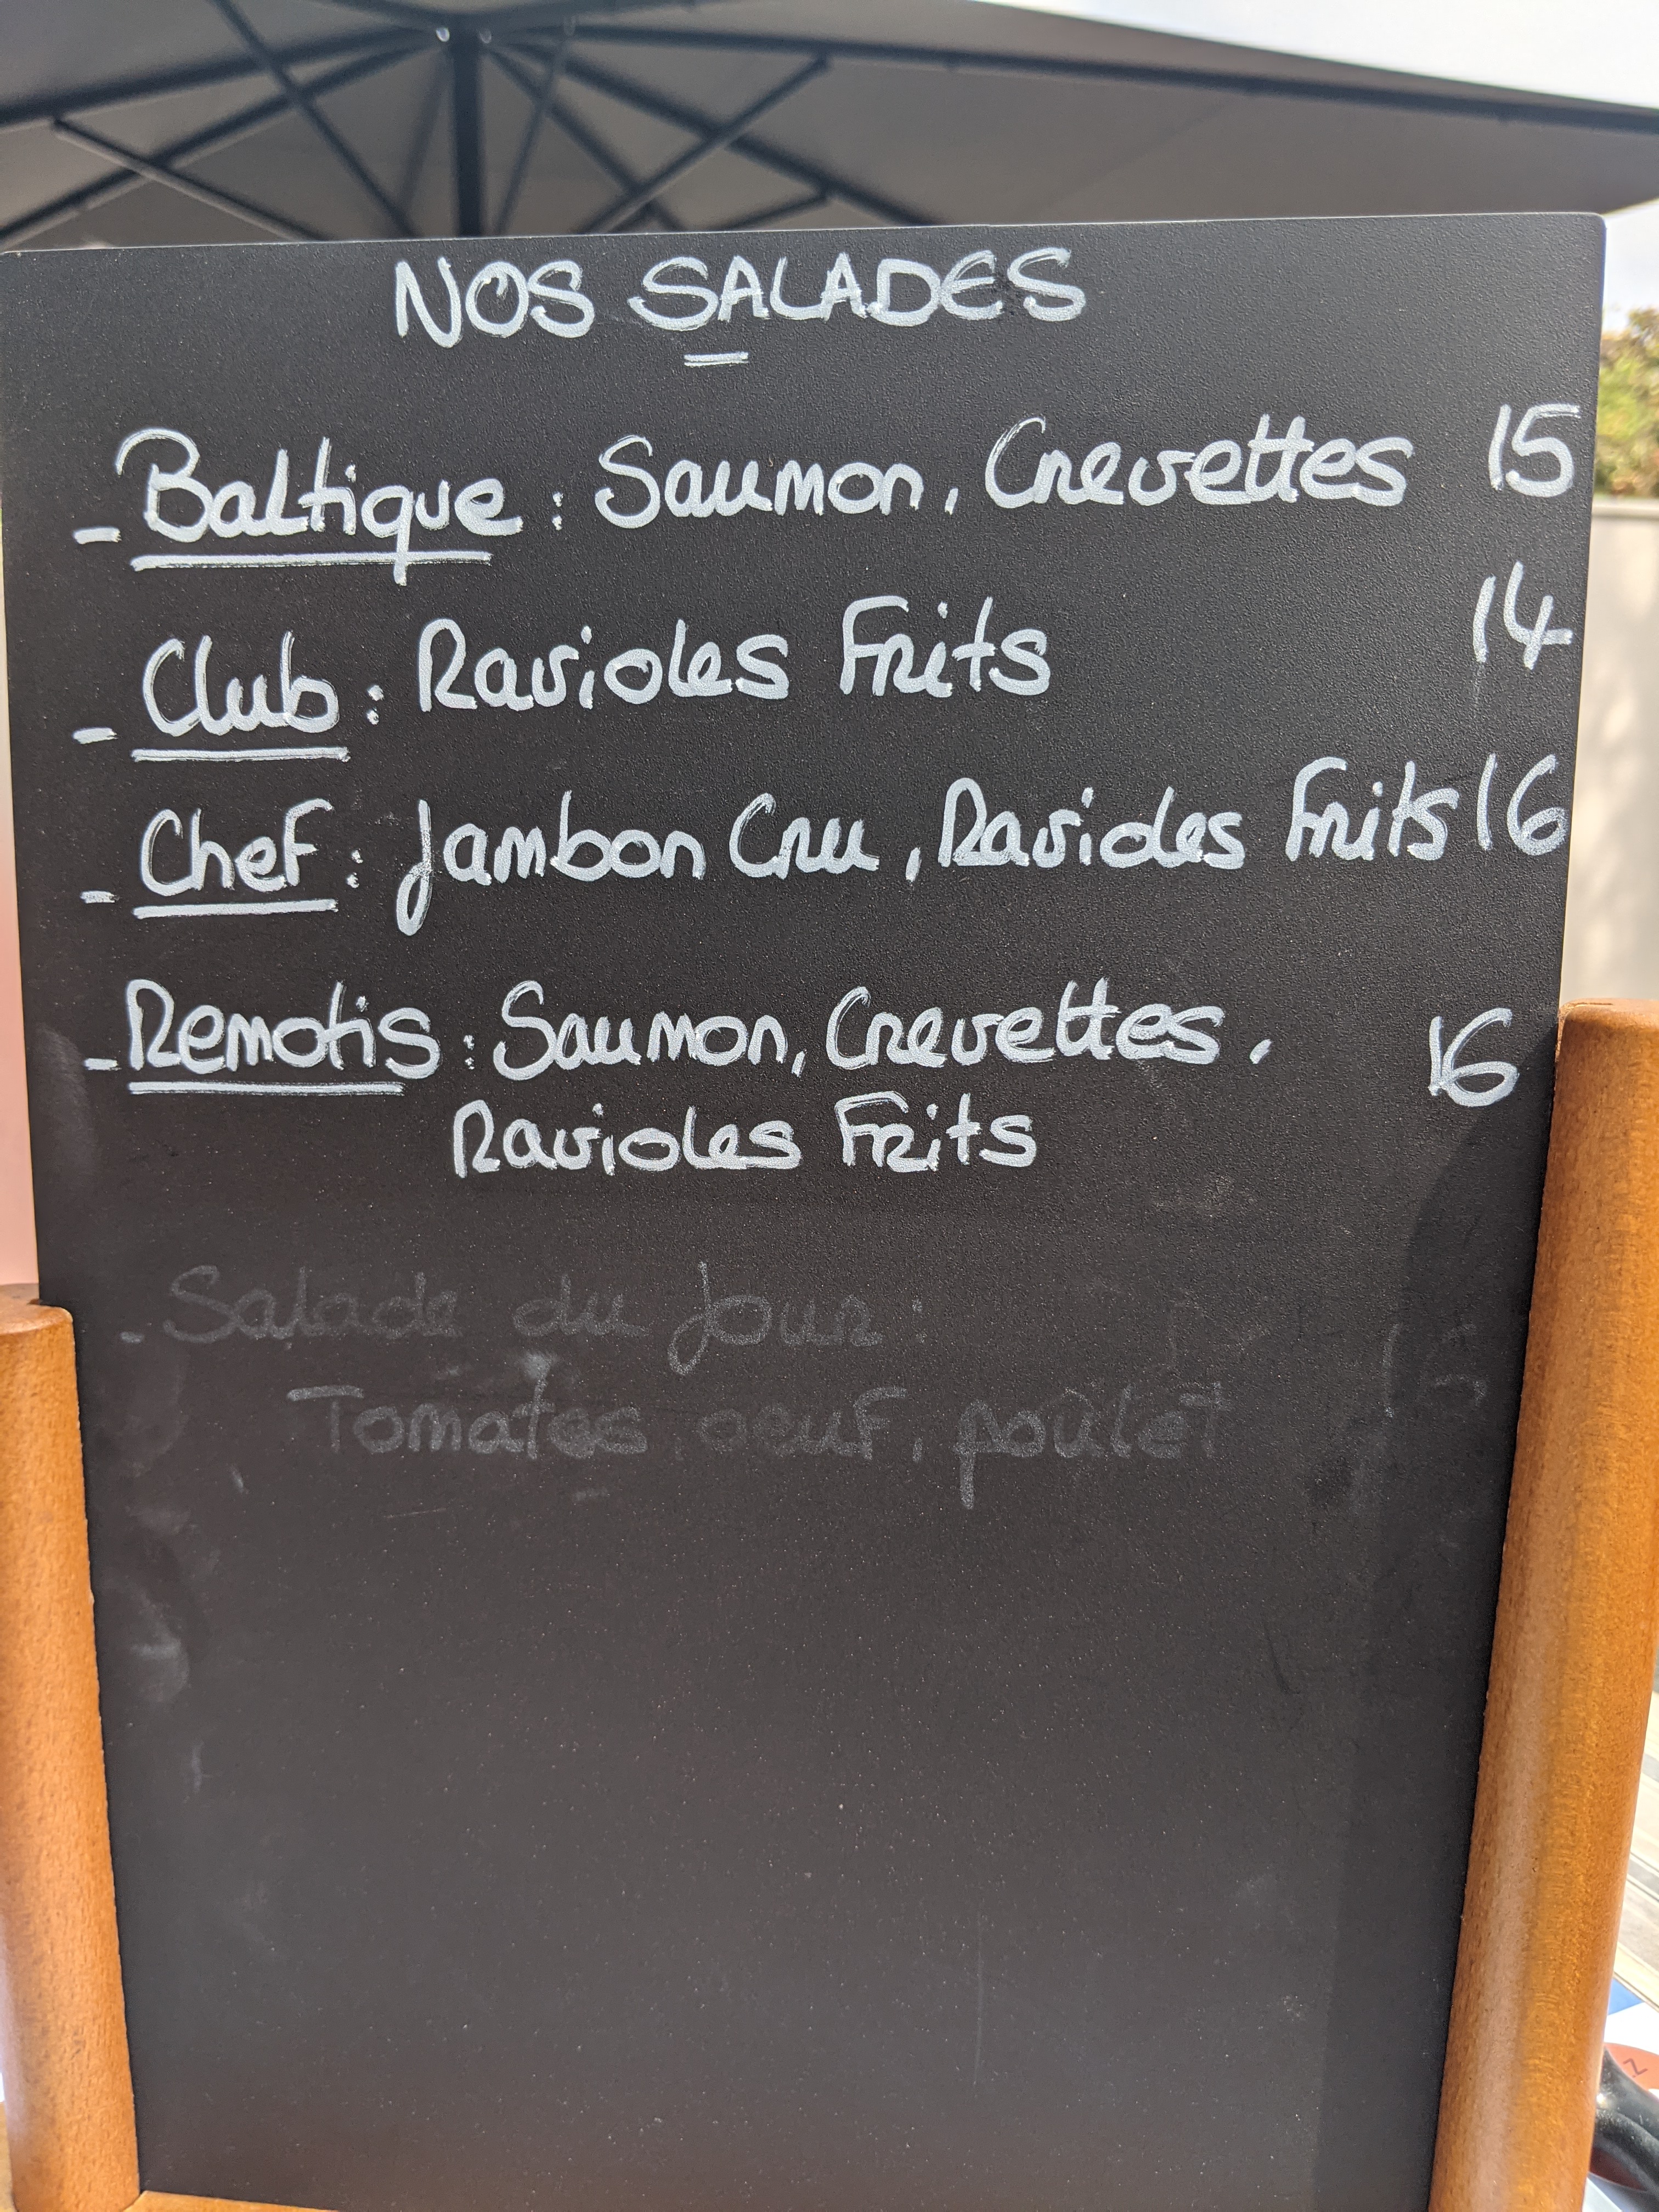 NOS SALADES
- Baltique : Saumon, Crevettes 15
- Club : Ravioles Frits 14
- Chef : Jambon Cru, Ravioles Frits 16
- Remotis : Saumon, Crevettes, 16
Ravioles Frits
- Salade du jour :
Tomates, oeuf, poulet